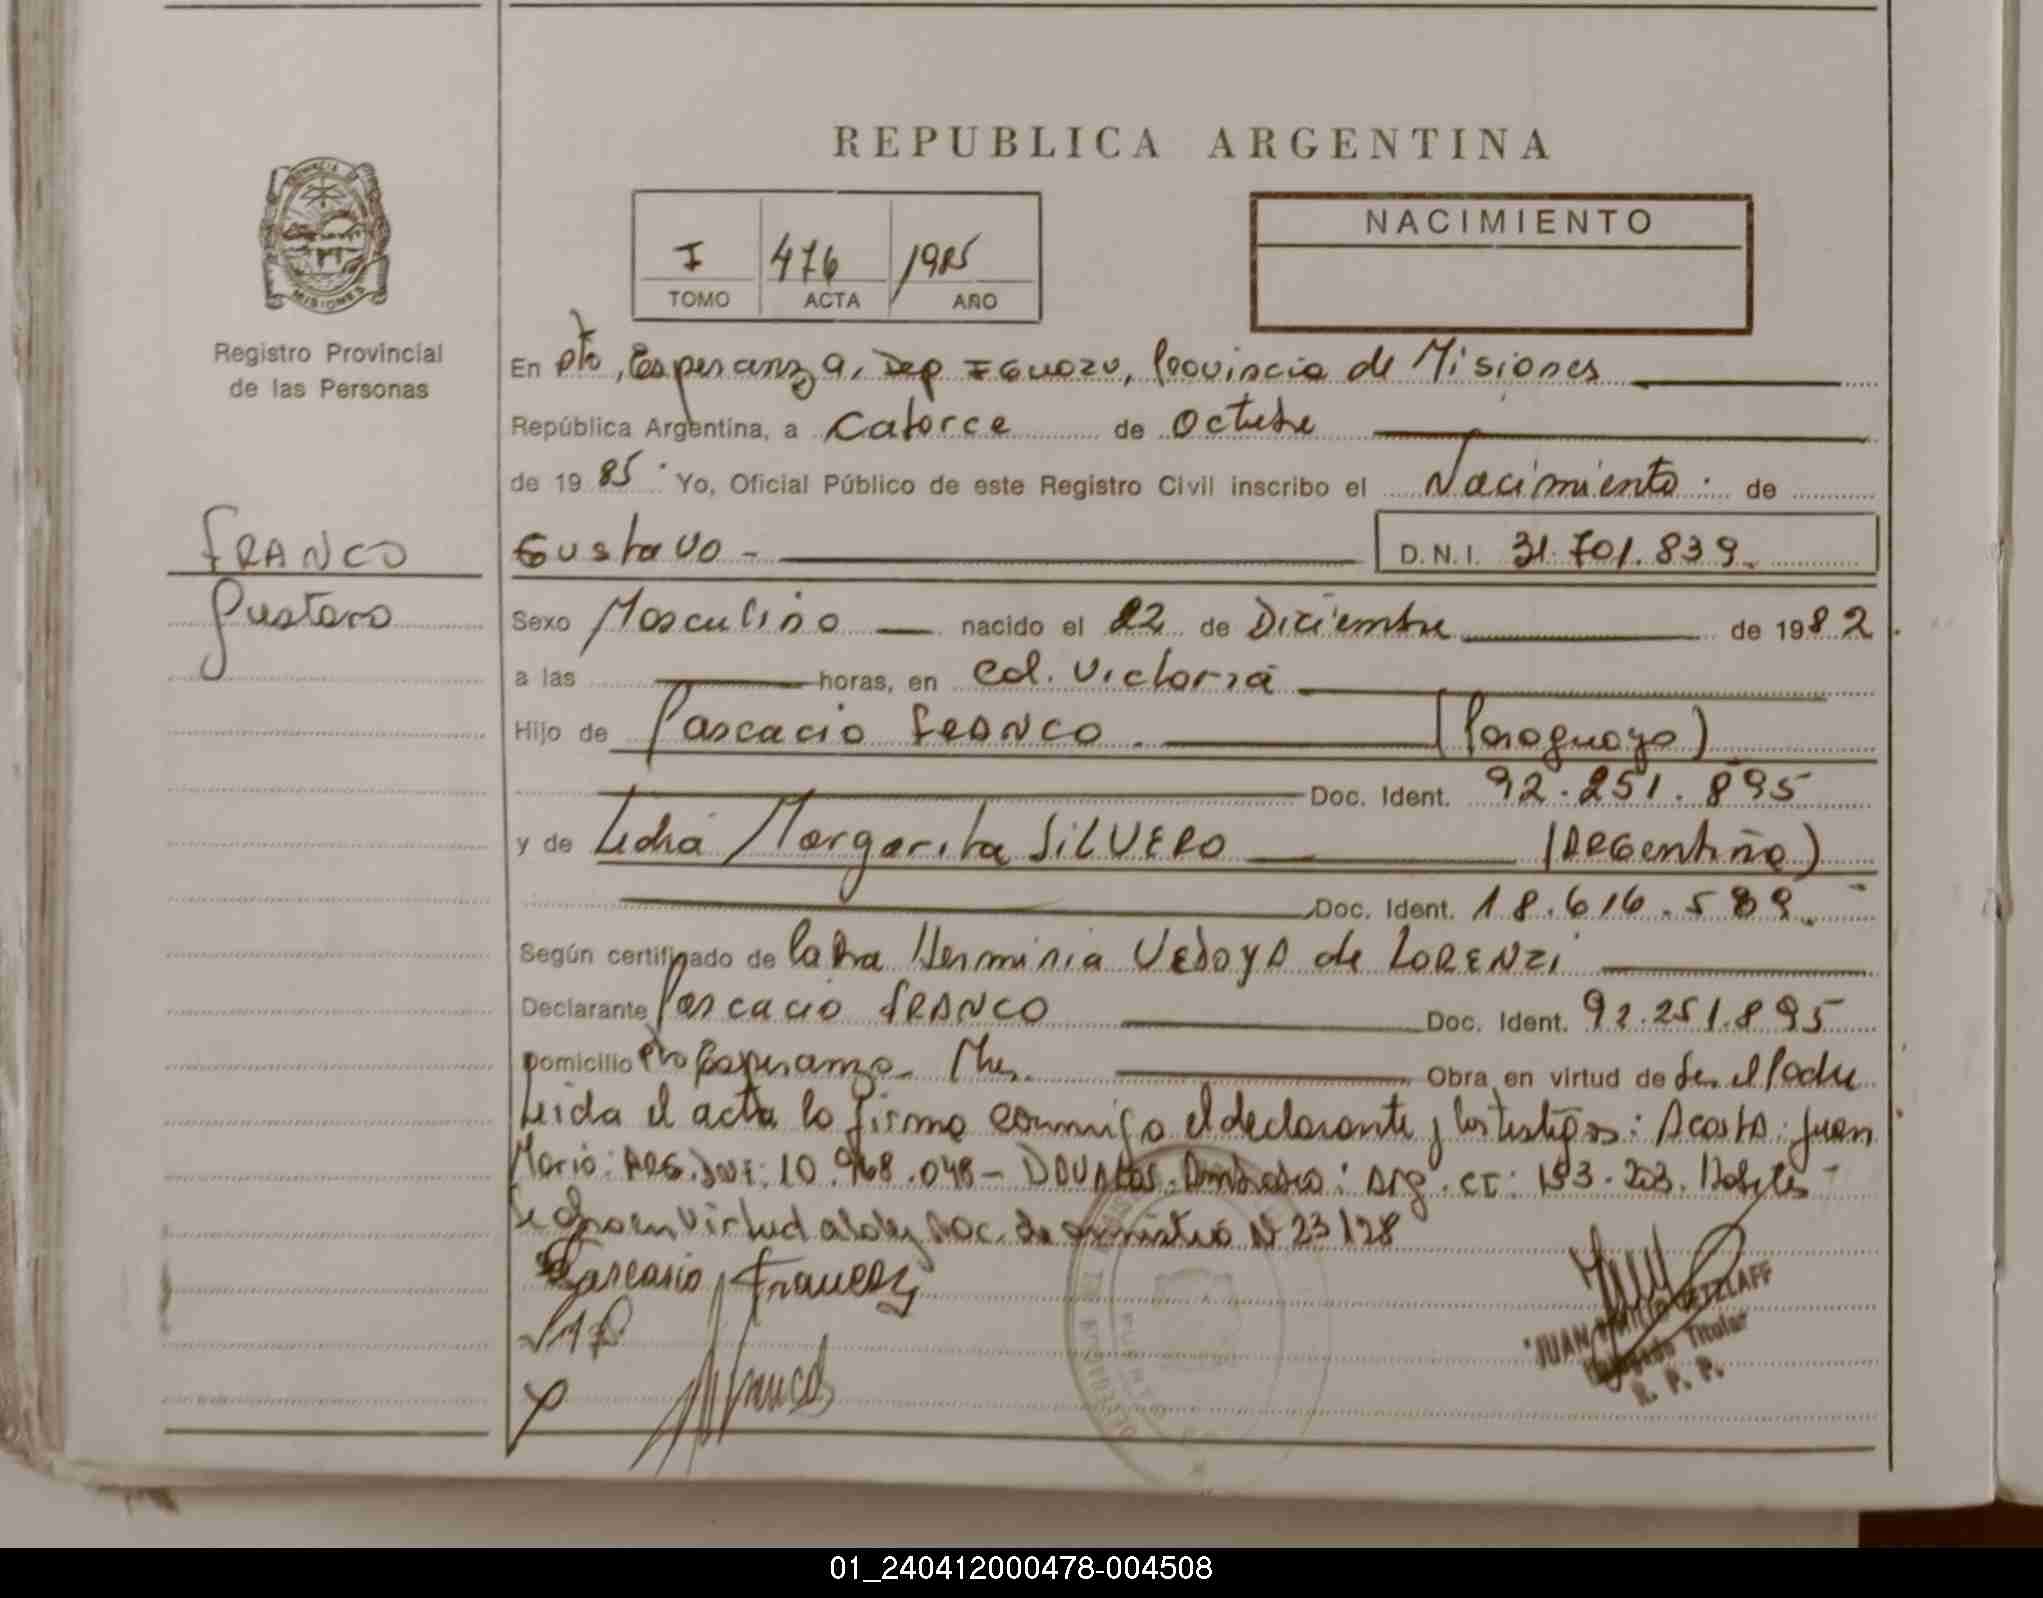 REPUBLICA ARGENTINA
PROVINCIA DE
MISIONES
Registro Provincial
de las Personas
I 476 1985
TOMO ACTA AÑO
NACIMIENTO
En Pto, Esperanza, Dep IGUAZU, Provincia de Misiones
República Argentina, a Catorce de Octubre
de 1985. Yo, Oficial Público de este Registro Civil inscribo el Nacimiento. de
FRANCO
Gustavo
Gustavo - D.N.I. 31.701.839.
Sexo Masculino nacido el 22 de Diciembre de 1982
a las horas, en Col. Victoria
Hijo de Pascacio FRANCO (Paraguayo)
Doc. Ident. 92.251.895
y de Lidia Margarita SILVERO (ARGentina)
Doc. Ident. 18.616.589.
Según certificado de la Dra Herminia VEDOYA de LORENZI
Declarante Pascacio FRANCO Doc. Ident. 92.251.895
Domicilio Pto Esperanza - Mnes. Obra en virtud de Ser el Padre
Leida el acta la firma conmigo el declarante y los testigos: Acosta Juan
Mario: ARG. DNI: 10.968.048 - Arg. CI: 153.203. Habiles -
Se en virtud a la ley Nac. de amnistia N 23128
Pascasio Franco
JUAN
Titular
R. P. P.
01_240412000478-004508